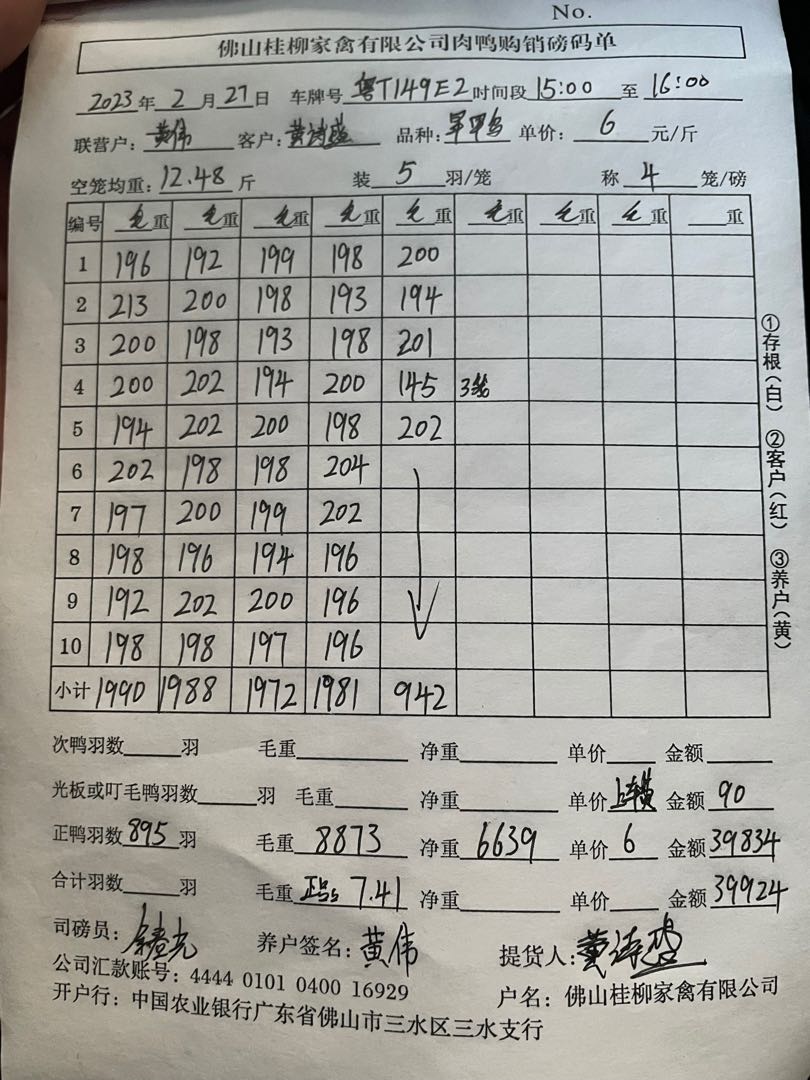 No.
佛山桂柳家禽有限公司肉鸭购销磅码单
2023年2月27日 车牌号粤T149E2时间段15:00至16:00
联营户:黄伟 客户:黄诗盛 品种: 单价:6元/斤
空笼均重:12.48斤 装5羽/笼 称4笼/磅
编号 毛重 毛重 毛重 毛重 毛重 毛重 毛重 毛重 重
1 196 192 199 198 200
2 213 200 198 193 194
3 200 198 193 198 201
4 200 202 194 200 145 3笼
5 194 202 200 198 202
6 202 198 198 204
7 197 200 199 202
8 198 196 194 196
9 192 202 200 196
10 198 198 197 196
小计 1990 1988 1972 1981 942
①存根(白) ②客户(红) ③养户(黄)
次鸭羽数 羽 毛重 净重 单价 金额
光板或叮毛鸭羽数 羽 毛重 净重 单价上车费 金额90
正鸭羽数895羽 毛重8873 净重6639 单价6 金额39834
合计羽数 羽 毛重 7.41 净重 单价 金额39924
司磅员: 养户签名:黄伟 提货人:黄诗盛
公司汇款账号: 4444 0101 0400 16929
开户行: 中国农业银行广东省佛山市三水区三水支行 户名: 佛山桂柳家禽有限公司